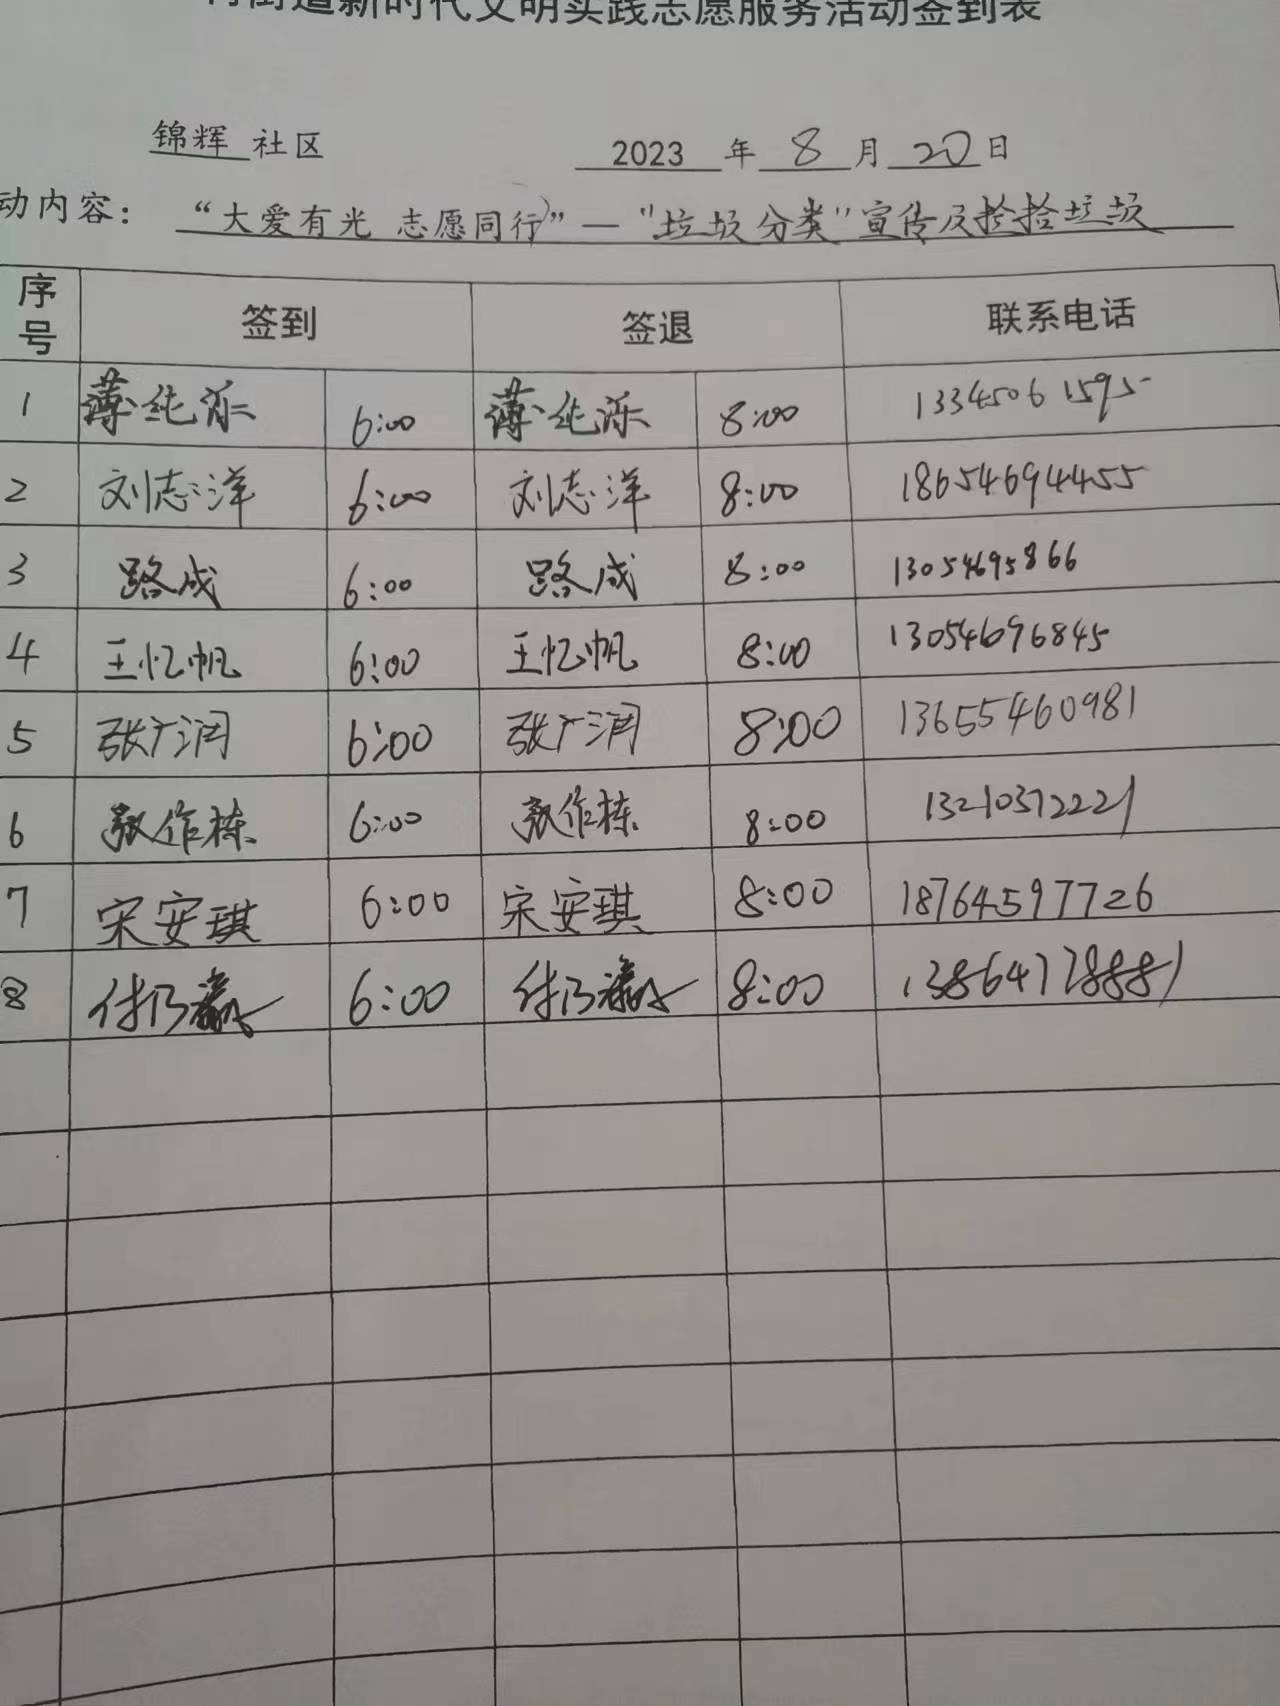 街道新时代文明实践志愿服务活动签到表
锦辉 社区 2023 年 8 月 20 日
动内容： “大爱有光 志愿同行”—"垃圾分类"宣传及捡捡垃圾
序号 签到 签退 联系电话
1 薄纯泺 6:00 薄纯泺 8:00 13345061595
2 刘志洋 6:00 刘志洋 8:00 18654694455
3 路成 6:00 路成 8:00 13054695866
4 王忆帆 6:00 王忆帆 8:00 13054696845
5 张广润 6:00 张广润 8:00 13655460981
6 作栋 6:00 作栋 8:00 13210372221
7 宋安琪 6:00 宋安琪 8:00 18764597726
8 付乃 6:00 付乃 8:00 13864778881